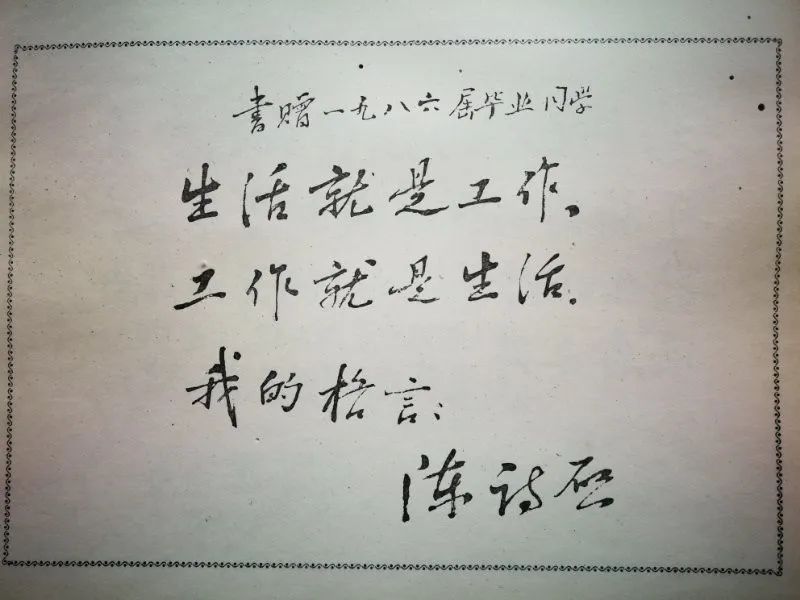 書赠一九八六届毕业同学
生活就是工作。
工作就是生活。
我的格言:
陈诗启